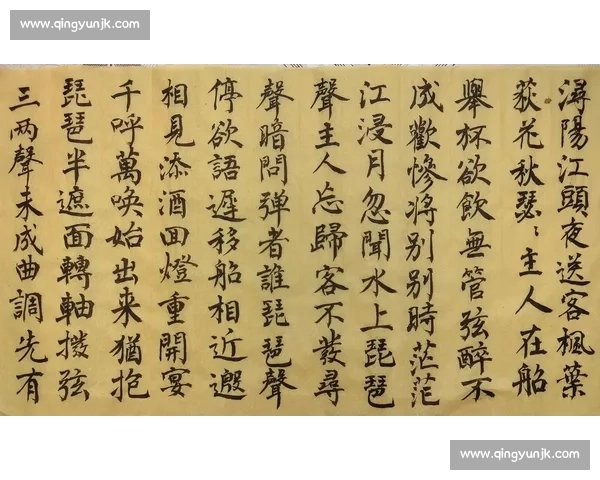 www.qingyunjk.com
潯陽江頭夜送客楓葉
荻花秋瑟〻主人在船
舉杯欲飲無管弦醉不
成歡慘將别别時茫茫
江浸月忽聞水上琵琶
聲主人忘歸客不發尋
聲暗問弹者誰琵琶聲
停欲語遲移船相近邀
相見添酒回燈重開宴
千呼萬喚始出来猶抱
琵琶半遮面轉軸撥弦
三两聲未成曲調先有
www.qingyunjk.com